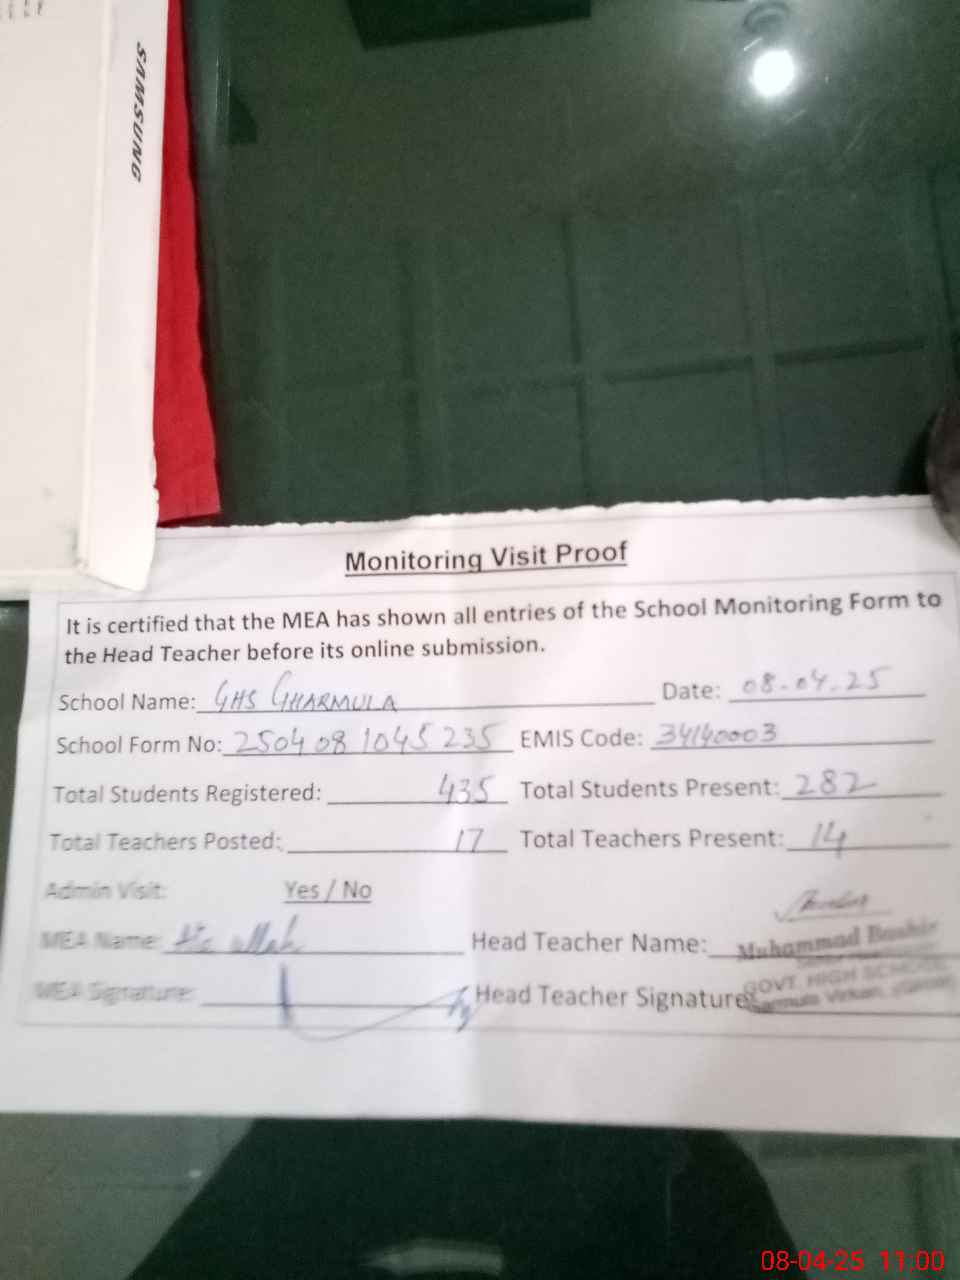 SAMSUNG
Monitoring Visit Proof
It is certified that the MEA has shown all entries of the School Monitoring Form to
the Head Teacher before its online submission.
School Name: GHS GHARMULA Date: 08-04-25
School Form No: 2504081045235 EMIS Code: 34140003
Total Students Registered: 435 Total Students Present: 282
Total Teachers Posted: 17 Total Teachers Present: 14
Admin Visit: Yes / No
MEA Name: ullah Head Teacher Name: Muhammad Bashir
MEA Signature: Head Teacher Signature
GOVT. HIGH SCHOOL
08-04-25 11:00